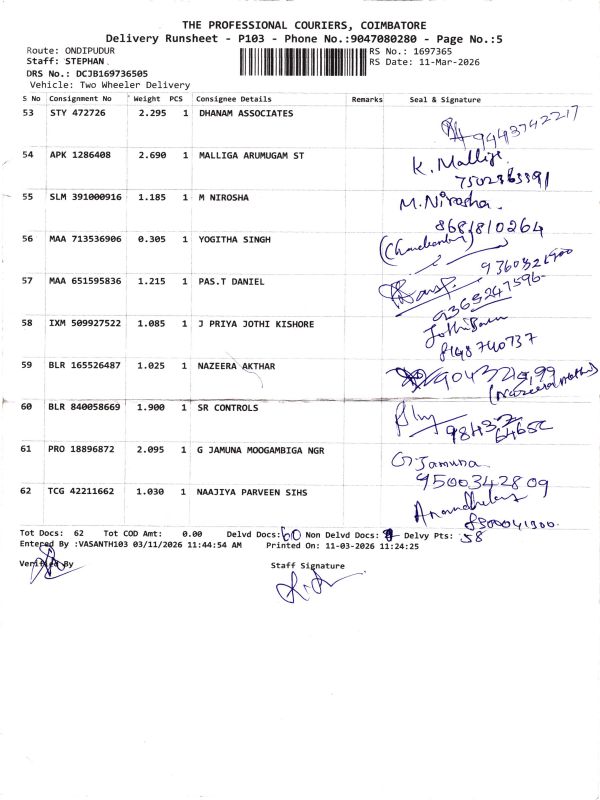 THE PROFESSIONAL COURIERS, COIMBATORE
Delivery Runsheet - P103 - Phone No.:9047080280 - Page No.:5
Route: ONDIPUDUR
RS No.: 1697365
Staff: STEPHAN
RS Date: 11-Mar-2026
DRS No.: DCJB169736505
Vehicle: Two Wheeler Delivery
S No Consignment No Weight PCS Consignee Details Remarks Seal & Signature
53 STY 472726 2.295 1 DHANAM ASSOCIATES
9443742217
54 APK 1286408 2.690 1 MALLIGA ARUMUGAM ST
K. Malliga
7502863391
55 SLM 391000916 1.185 1 M NIROSHA
M. Nirosha.
8681810264
56 MAA 713536906 0.305 1 YOGITHA SINGH
57 MAA 651595836 1.215 1 PAS.T DANIEL
9365247596
58 IXM 509927522 1.085 1 J PRIYA JOTHI KISHORE
8148740737
59 BLR 165526487 1.025 1 NAZEERA AKTHAR
60 BLR 840058669 1.900 1 SR CONTROLS
61 PRO 18896872 2.095 1 G JAMUNA MOOGAMBIGA NGR
G. Jamuna
9500342809
62 TCG 42211662 1.030 1 NAAJIYA PARVEEN SIHS
Tot Docs: 62 Tot COD Amt: 0.00 Delvd Docs: 60 Non Delvd Docs: Delvy Pts: 58
Entered By :VASANTH103 03/11/2026 11:44:54 AM Printed On: 11-03-2026 11:24:25
Verified By
Staff Signature